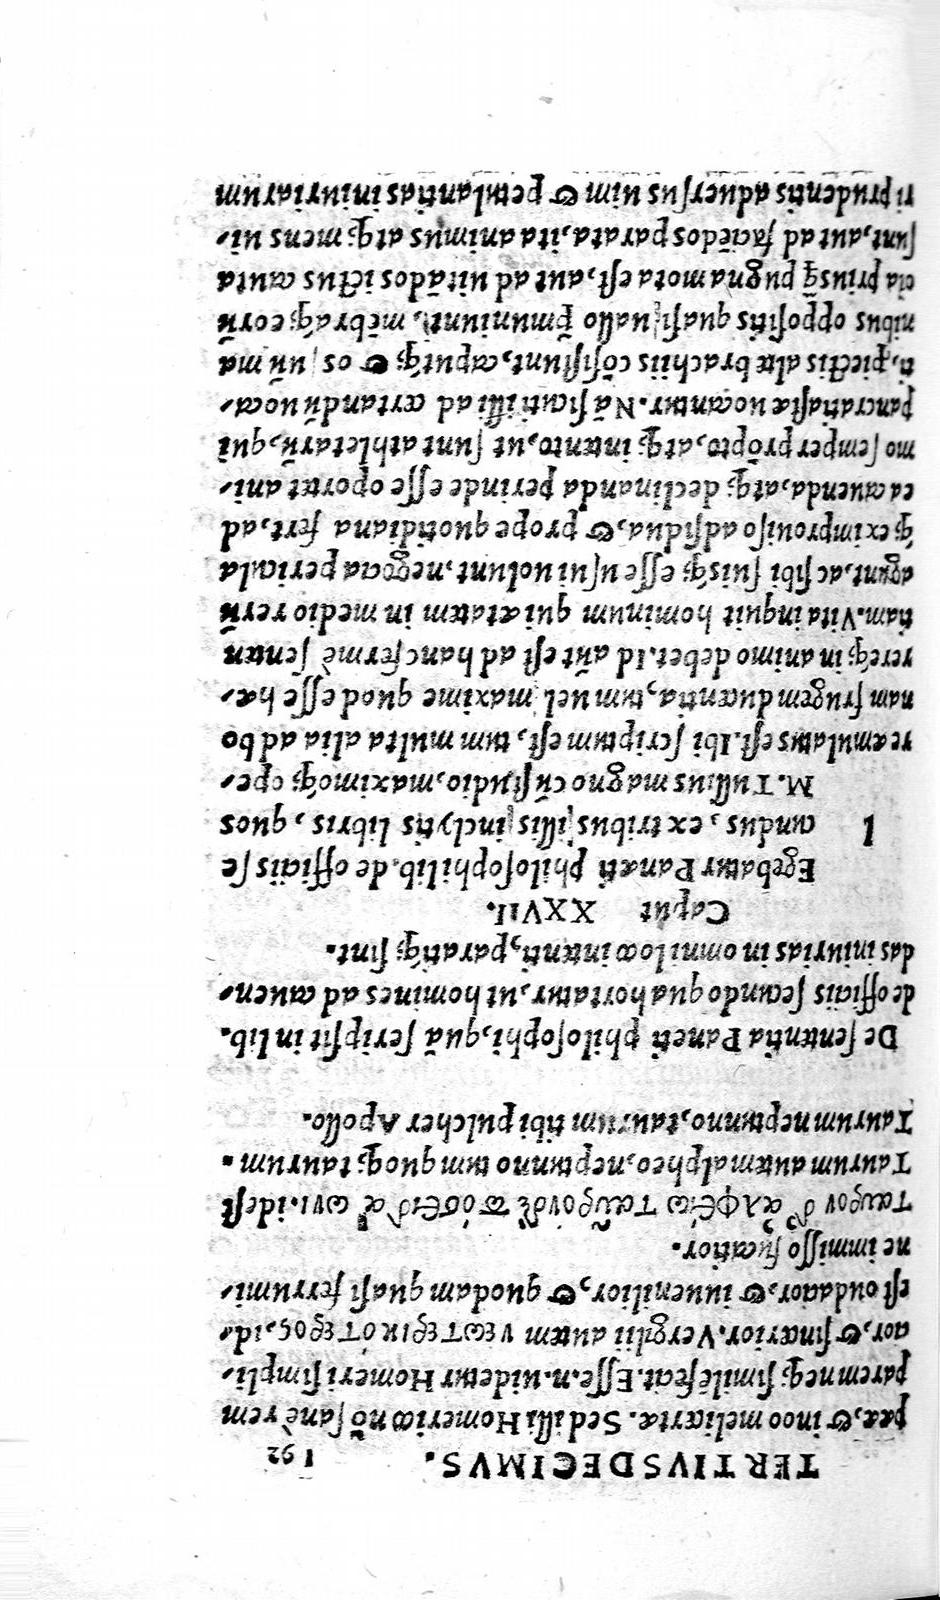 TERTIVSDECIMVS. 192
pææ, & in eo o meliærtæ. Sed illi Homerico nō sanè rem
parem neq; similē fecit. Esse.n.uidetur Homeri simpli-
cior, & sincerior. Vergilii autem νεωτερικότερος, id-
est ouδacior, & iuuenilior, & quodam quasi ferrumi-
ne immisso fucatior.
Ταῦρον δ' ἀλφειῷ ταῦρον δὲ ποσειδάωνι. idest
Taurum autem alpheo, neptunno tum quoq; taurum.
Taurum neptunno, taurum tibi pulcher Apollo.
De sententia Paneti philosophi, quā scripsit in lib.
de officiis secundo qua hortatur, ut homines ad cauen-
das iniurias in omni loco intenti, paratiq; sint.
Caput XXVII.
l Egebatur Panæti philosophi lib. de officiis se
cundus, ex tribus illis inclytis libris, quos
M. Tullius magno cū studio, maximoq; ope-
re æmulatus est. Ibi scriptum est, tum multa alia ad bo
nam frugem ducentia, tum uel maxime quod esse hæ-
rereq; in animo debet. Id aūt est ad hanc fermè senten
tiam. Vita inquit hominum qui ætatem in medio rerū
agunt, ac sibi suisq; esse usui uolunt, negocia pericula
q; ex improuiso adsidua, & prope quotidiana fert, ad
ea cauenda, atq; declinanda perinde esse oportet ani-
mo semper prōpto, atq; intento, ut sunt athletarū, qui
pancratiastæ uocantur. Nā sicut illi ad certandū uoca-
ti, piectis altæ brachiis cōsistunt, caputq; & os suū ma
nibus oppositis quasi uallo p̄muniunt, mēbraq; eorū
cia priusq̄ pugna mota est, aut ad uitādos ictus cauta
sunt, aut ad faciēdos parata, ita animus atq; mens ui-
ri prudentis aduersus uim & petulantias iniuriarum